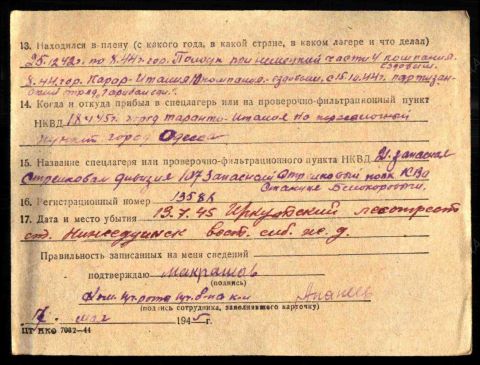 13. Находился в плену (с какого года, в какой стране, в каком лагере и что делал)
25.12.42г. по 8.44г. гор. при немецкой части 4 компания
ездовым.
8.44 гор. Италия компания - ездовым, с 15.10.44г. партизан-
ский отряд
14. Когда и откуда прибыл в спецлагерь или на проверочно-фильтрационный пункт
НКВД 18.4.45г. город Таранто - Италия на пересыльный
пункт город Одесса
15. Название спецлагеря или проверочно-фильтрационного пункта НКВД 21 запасная
Стрелковая дивизия 107 Запасной Стрелковый полк
16. Регистрационный номер 1358
17. Дата и место убытия 13.7.45 Иркутский лесотрест
ст. Нижнеудинск вост. сиб. ж.д.
Правильность записанных на меня сведений
подтверждаю
(подпись)
(подпись сотрудника, заполнявшего карточку)
мая 1945г.
ЦТ НКО 7082—44